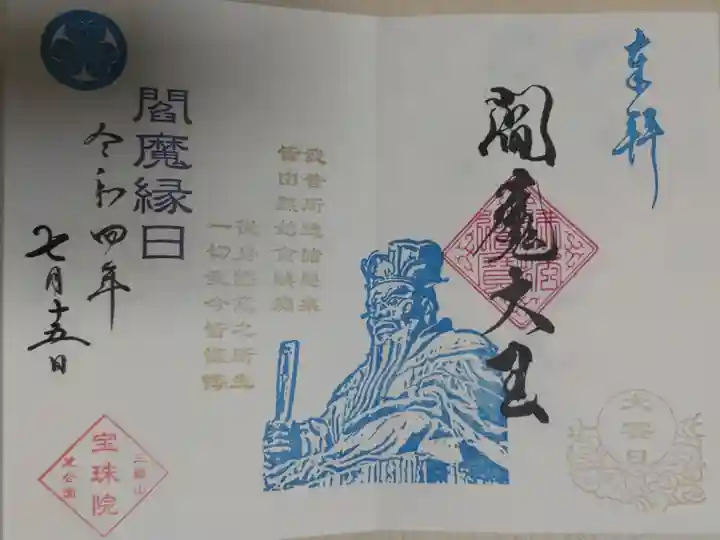 奉拝
閻魔大王
大斎日
我昔所造諸悪業
皆由無始貪瞋癡
従身語意之所生
一切我今皆懺悔
閻魔縁日
令和四年
七月十五日
三縁山
宝珠院
芝公園